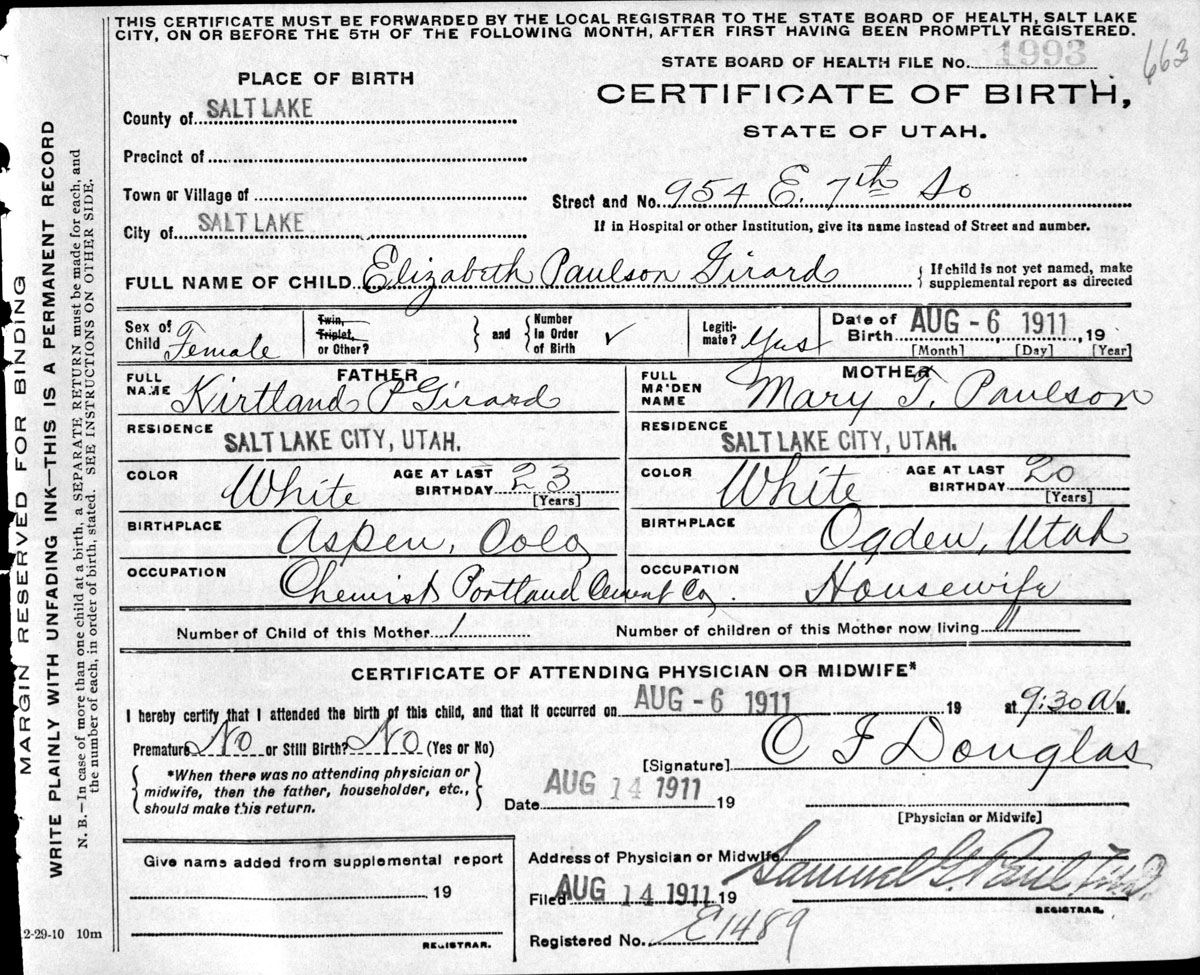 THIS CERTIFICATE MUST BE FORWARDED BY THE LOCAL REGISTRAR TO THE STATE BOARD OF HEALTH, SALT LAKE
CITY, ON OR BEFORE THE 5TH OF THE FOLLOWING MONTH, AFTER FIRST HAVING BEEN PROMPTLY REGISTERED.
STATE BOARD OF HEALTH FILE No. 1993
663
PLACE OF BIRTH
CERTIFICATE OF BIRTH,
STATE OF UTAH.
County of SALT LAKE
Precinct of
Town or Village of
Street and No. 954 E. 7th So
City of SALT LAKE
If in Hospital or other Institution, give its name instead of Street and number.
FULL NAME OF CHILD Elizabeth Paulson Girard
{ If child is not yet named, make
supplemental report as directed
Sex of Child Female
Twin, Triplet, or Other?
} and { Number In Order of Birth ✓
Legiti-mate? Yes
Date of Birth AUG - 6 1911, 19
[Month] [Day] [Year]
FATHER
FULL NAME Kirtland P Girard
RESIDENCE SALT LAKE CITY, UTAH.
COLOR White AGE AT LAST BIRTHDAY 23
[Years]
BIRTHPLACE Aspen, Colo
OCCUPATION Chemist Portland Cement Co.
MOTHER
FULL MAIDEN NAME Mary T. Paulson
RESIDENCE SALT LAKE CITY, UTAH.
COLOR White AGE AT LAST BIRTHDAY 20
[Years]
BIRTHPLACE Ogden, Utah
OCCUPATION Housewife
Number of Child of this Mother 1 Number of children of this Mother now living 1
CERTIFICATE OF ATTENDING PHYSICIAN OR MIDWIFE*
I hereby certify that I attended the birth of this child, and that it occurred on AUG - 6 1911 19 at 9:30 A M.
Premature No or Still Birth? No (Yes or No)
[Signature] C F Douglas
{ *When there was no attending physician or
midwife, then the father, householder, etc.,
should make this return. }
Date AUG 14 1911 19
[Physician or Midwife]
Give name added from supplemental report
19
REGISTRAR.
Address of Physician or Midwife
Filed AUG 14 1911 19 Samuel G. Paul, M.D.
REGISTRAR.
Registered No. E1489
2-29-10 10m
MARGIN RESERVED FOR BINDING
WRITE PLAINLY WITH UNFADING INK—THIS IS A PERMANENT RECORD
N. B.—In case of more than one child at a birth, a SEPARATE RETURN must be made for each, and
the number of each, in order of birth, stated. SEE INSTRUCTIONS ON OTHER SIDE.